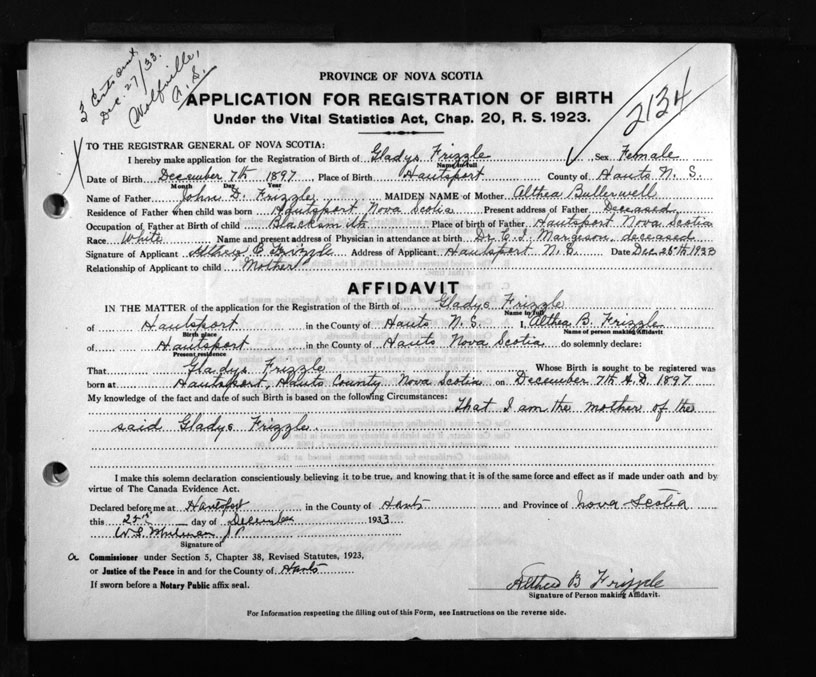 3 Certs sent
Dec. 27/33.
Wolfville,
N. S.
2134
PROVINCE OF NOVA SCOTIA
APPLICATION FOR REGISTRATION OF BIRTH
Under the Vital Statistics Act, Chap. 20, R. S. 1923.
TO THE REGISTRAR GENERAL OF NOVA SCOTIA:
I hereby make application for the Registration of Birth of Gladys Frizzle Sex Female
Name in full
Date of Birth December 7th 1897 Place of Birth Hantsport County of Hants N. S.
Month Day Year
Name of Father John D. Frizzle MAIDEN NAME of Mother Althea Bullerwell
Residence of Father when child was born Hantsport Nova Scotia Present address of Father Deceased
Occupation of Father at Birth of child Blacksmith Place of birth of Father Hantsport Nova Scotia
Race White Name and present address of Physician in attendance at birth Dr. Margeson, deceased
Signature of Applicant Althea B Frizzle Address of Applicant Hantsport N. S. Date Dec. 25th 1933
Relationship of Applicant to child Mother
AFFIDAVIT
IN THE MATTER of the application for the Registration of the Birth of Gladys Frizzle
Name in full
of Hantsport in the County of Hants N. S. I, Althea B. Frizzle
Birth place Name of person making Affidavit
of Hantsport in the County of Hants Nova Scotia do solemnly declare:
Present residence
That Gladys Frizzle Whose Birth is sought to be registered was
born at Hantsport, Hants County Nova Scotia on December 7th A.D. 1897
My knowledge of the fact and date of such Birth is based on the following Circumstances: That I am the mother of the
said Gladys Frizzle.
I make this solemn declaration conscientiously believing it to be true, and knowing that it is of the same force and effect as if made under oath and by
virtue of The Canada Evidence Act.
Declared before me at Hantsport in the County of Hants and Province of Nova Scotia
this 25th day of December 1933
Whitman J P
Signature of
a Commissioner under Section 5, Chapter 38, Revised Statutes, 1923,
or Justice of the Peace in and for the County of Hants
If sworn before a Notary Public affix seal.
Althea B Frizzle
Signature of Person making Affidavit.
For Information respecting the filling out of this Form, see Instructions on the reverse side.